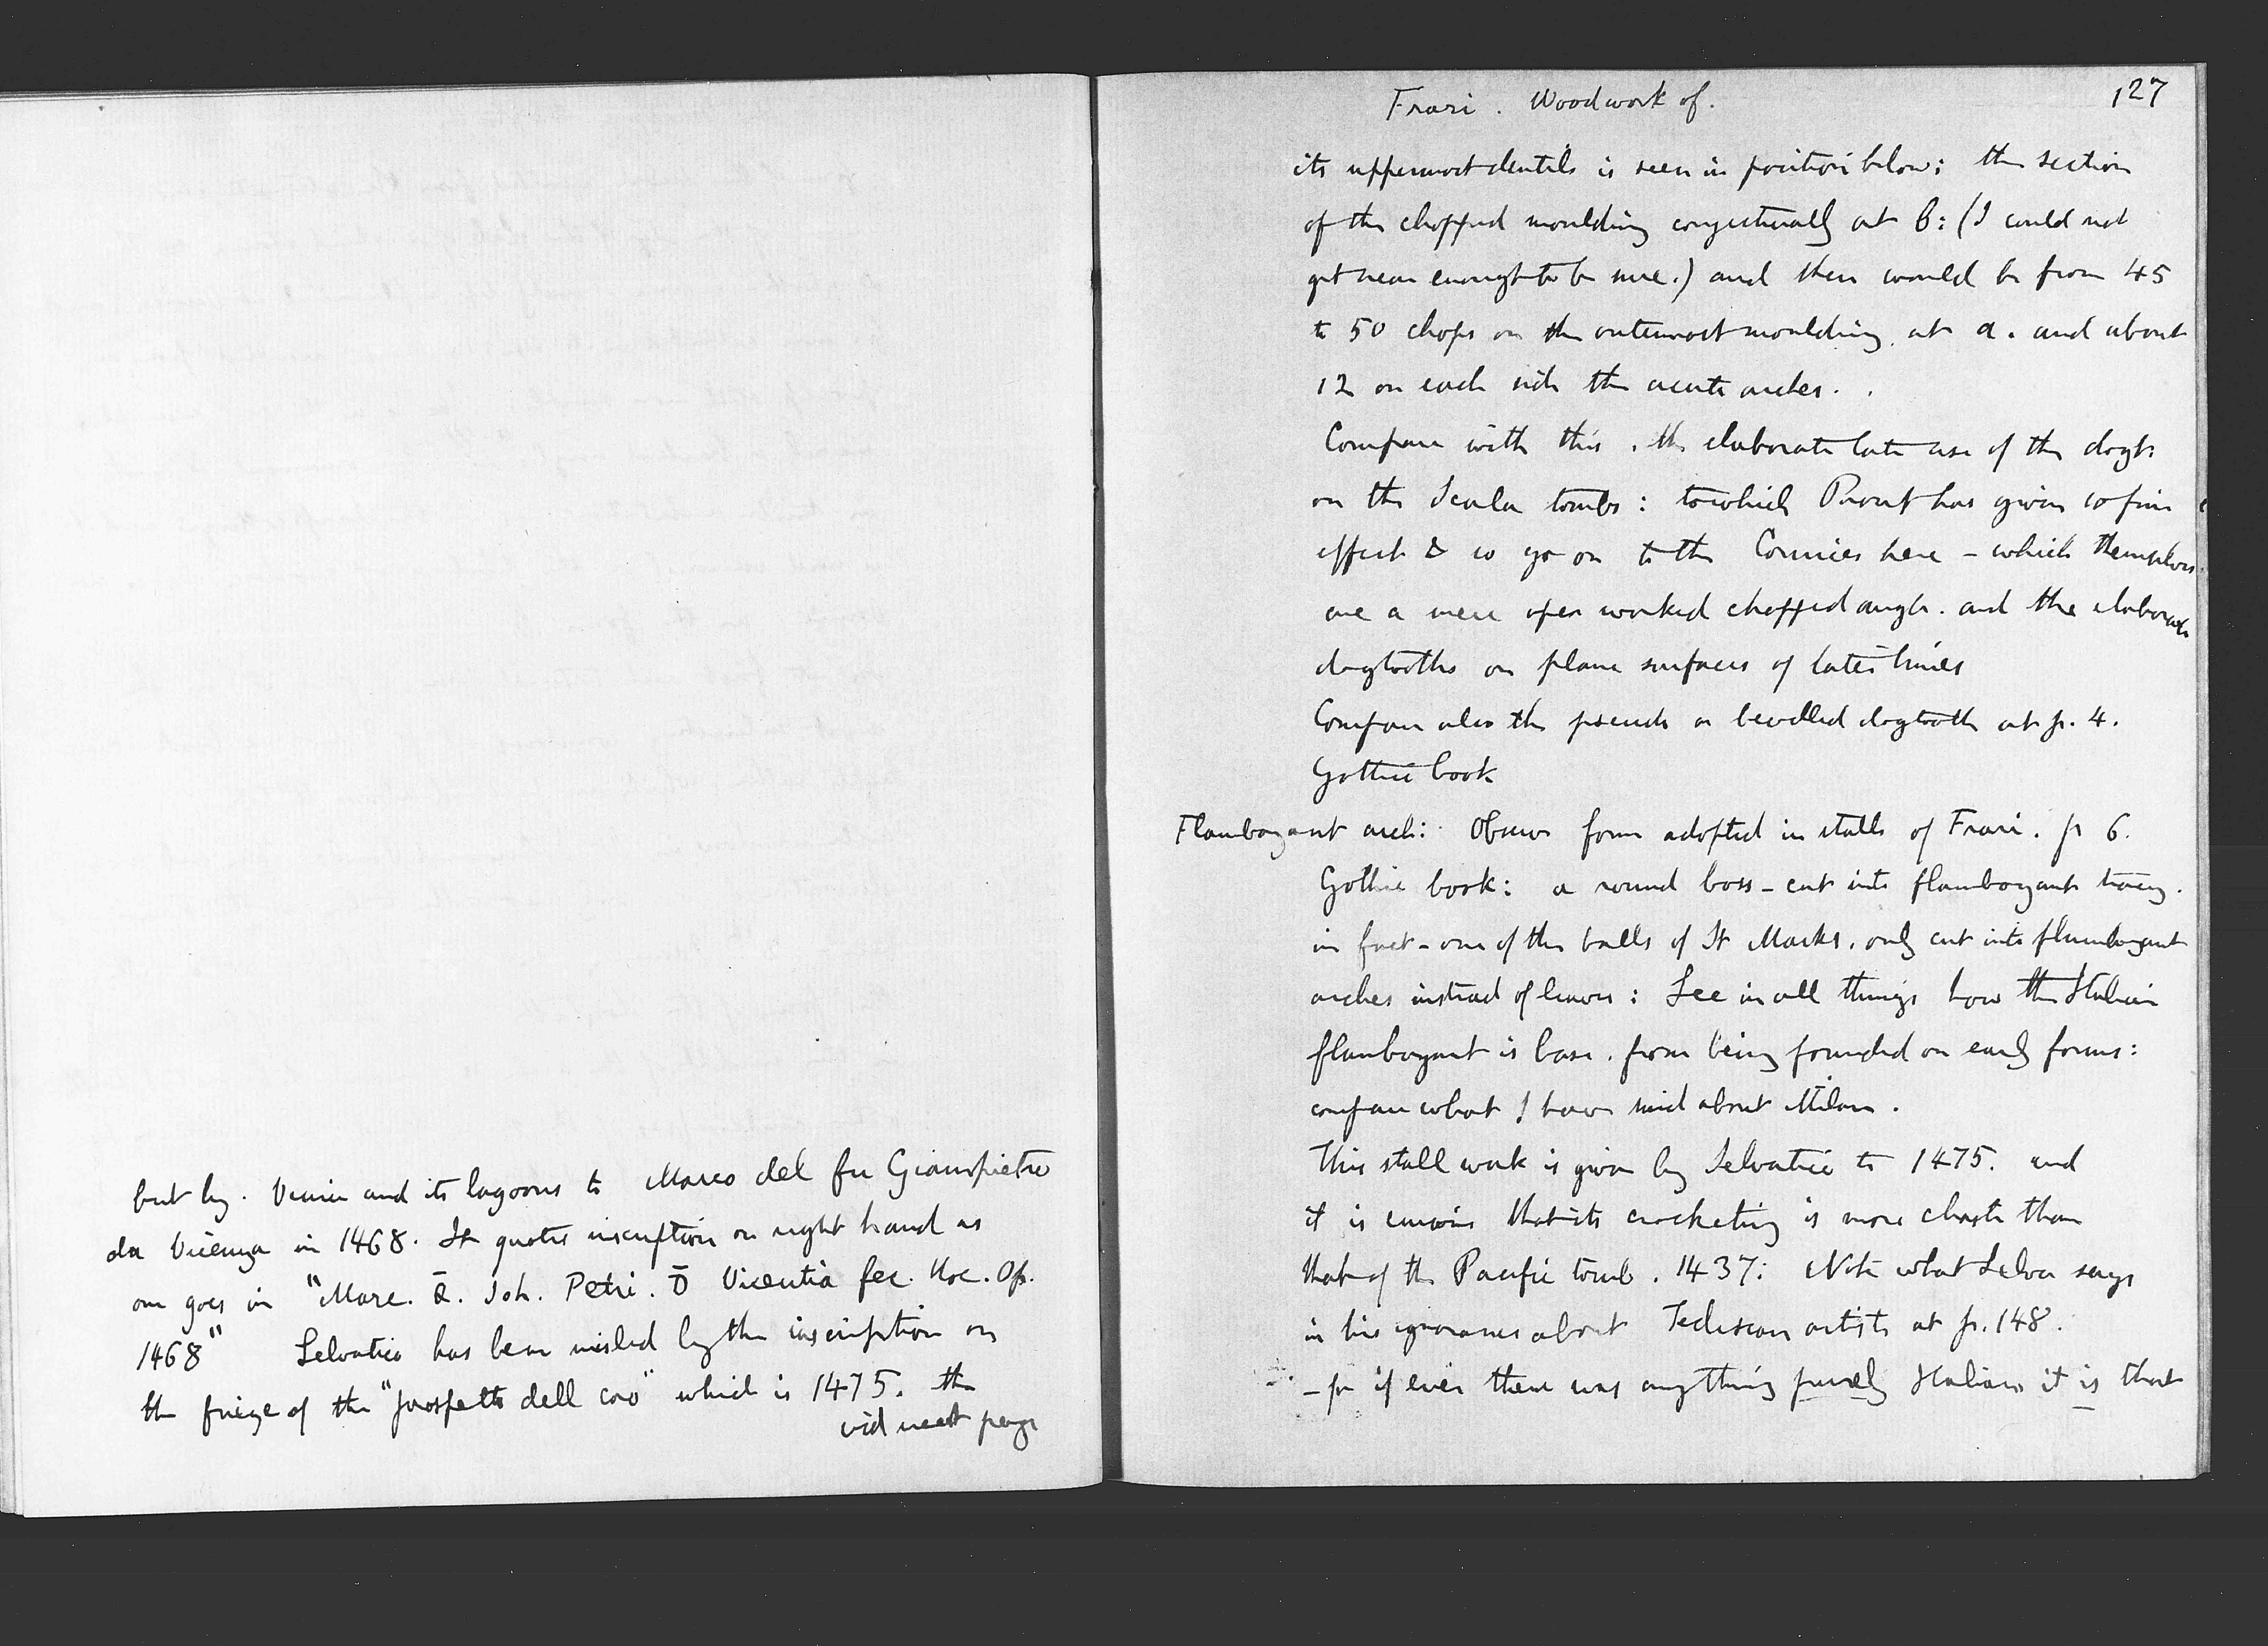 but by. Venice and its lagoons to Marco del fu Giampietro
da Vicenza in 1468. It quotes inscription on right hand as
one goes in "Marc. Q. Joh. Petri. D Vicentia fec. Hoc. Op.
1468" Selvatico has been misled by the inscription on
the frieze of the "prospetto dell coro" which is 1475. the
vid next page
Frari. Woodwork of.
127
its uppermost dentils is seen in position below: the section
of the chopped moulding conjecturally at b: (I could not
get near enough to be sure.) and there would be from 45
to 50 chops on the outermost moulding. at a. and about
12 on each side the acute arches.
Compare with this, the elaborate late use of the dogt:
on the Scala tombs: to which Prout has given so fine
effect & so go on to the Cornices here - which themselves
are a mere open worked chopped angle. and the elaborate
dogtooths on plane surfaces of later times
Compare also the pseudo or bevelled dogtooth at p. 4.
Gothic book
Flamboyant arch: Observe form adopted in stalls of Frari. p 6.
Gothic book: a round boss - cut into flamboyant tracery.
in fact - one of the balls of St Marks, only cut into flamboyant
arches instead of leaves: See in all things how the Italian
flamboyant is base. from being founded on early forms:
compare what I have said about Milan.
This stall work is given by Selvatico to 1475. and
it is curious that its crocketing is more chaste than
that of the Pacific tomb. 1437: Note what Selva says
in his ignorance about Tedescan artists at p. 148.
- for if ever there was anything purely Italian it is that